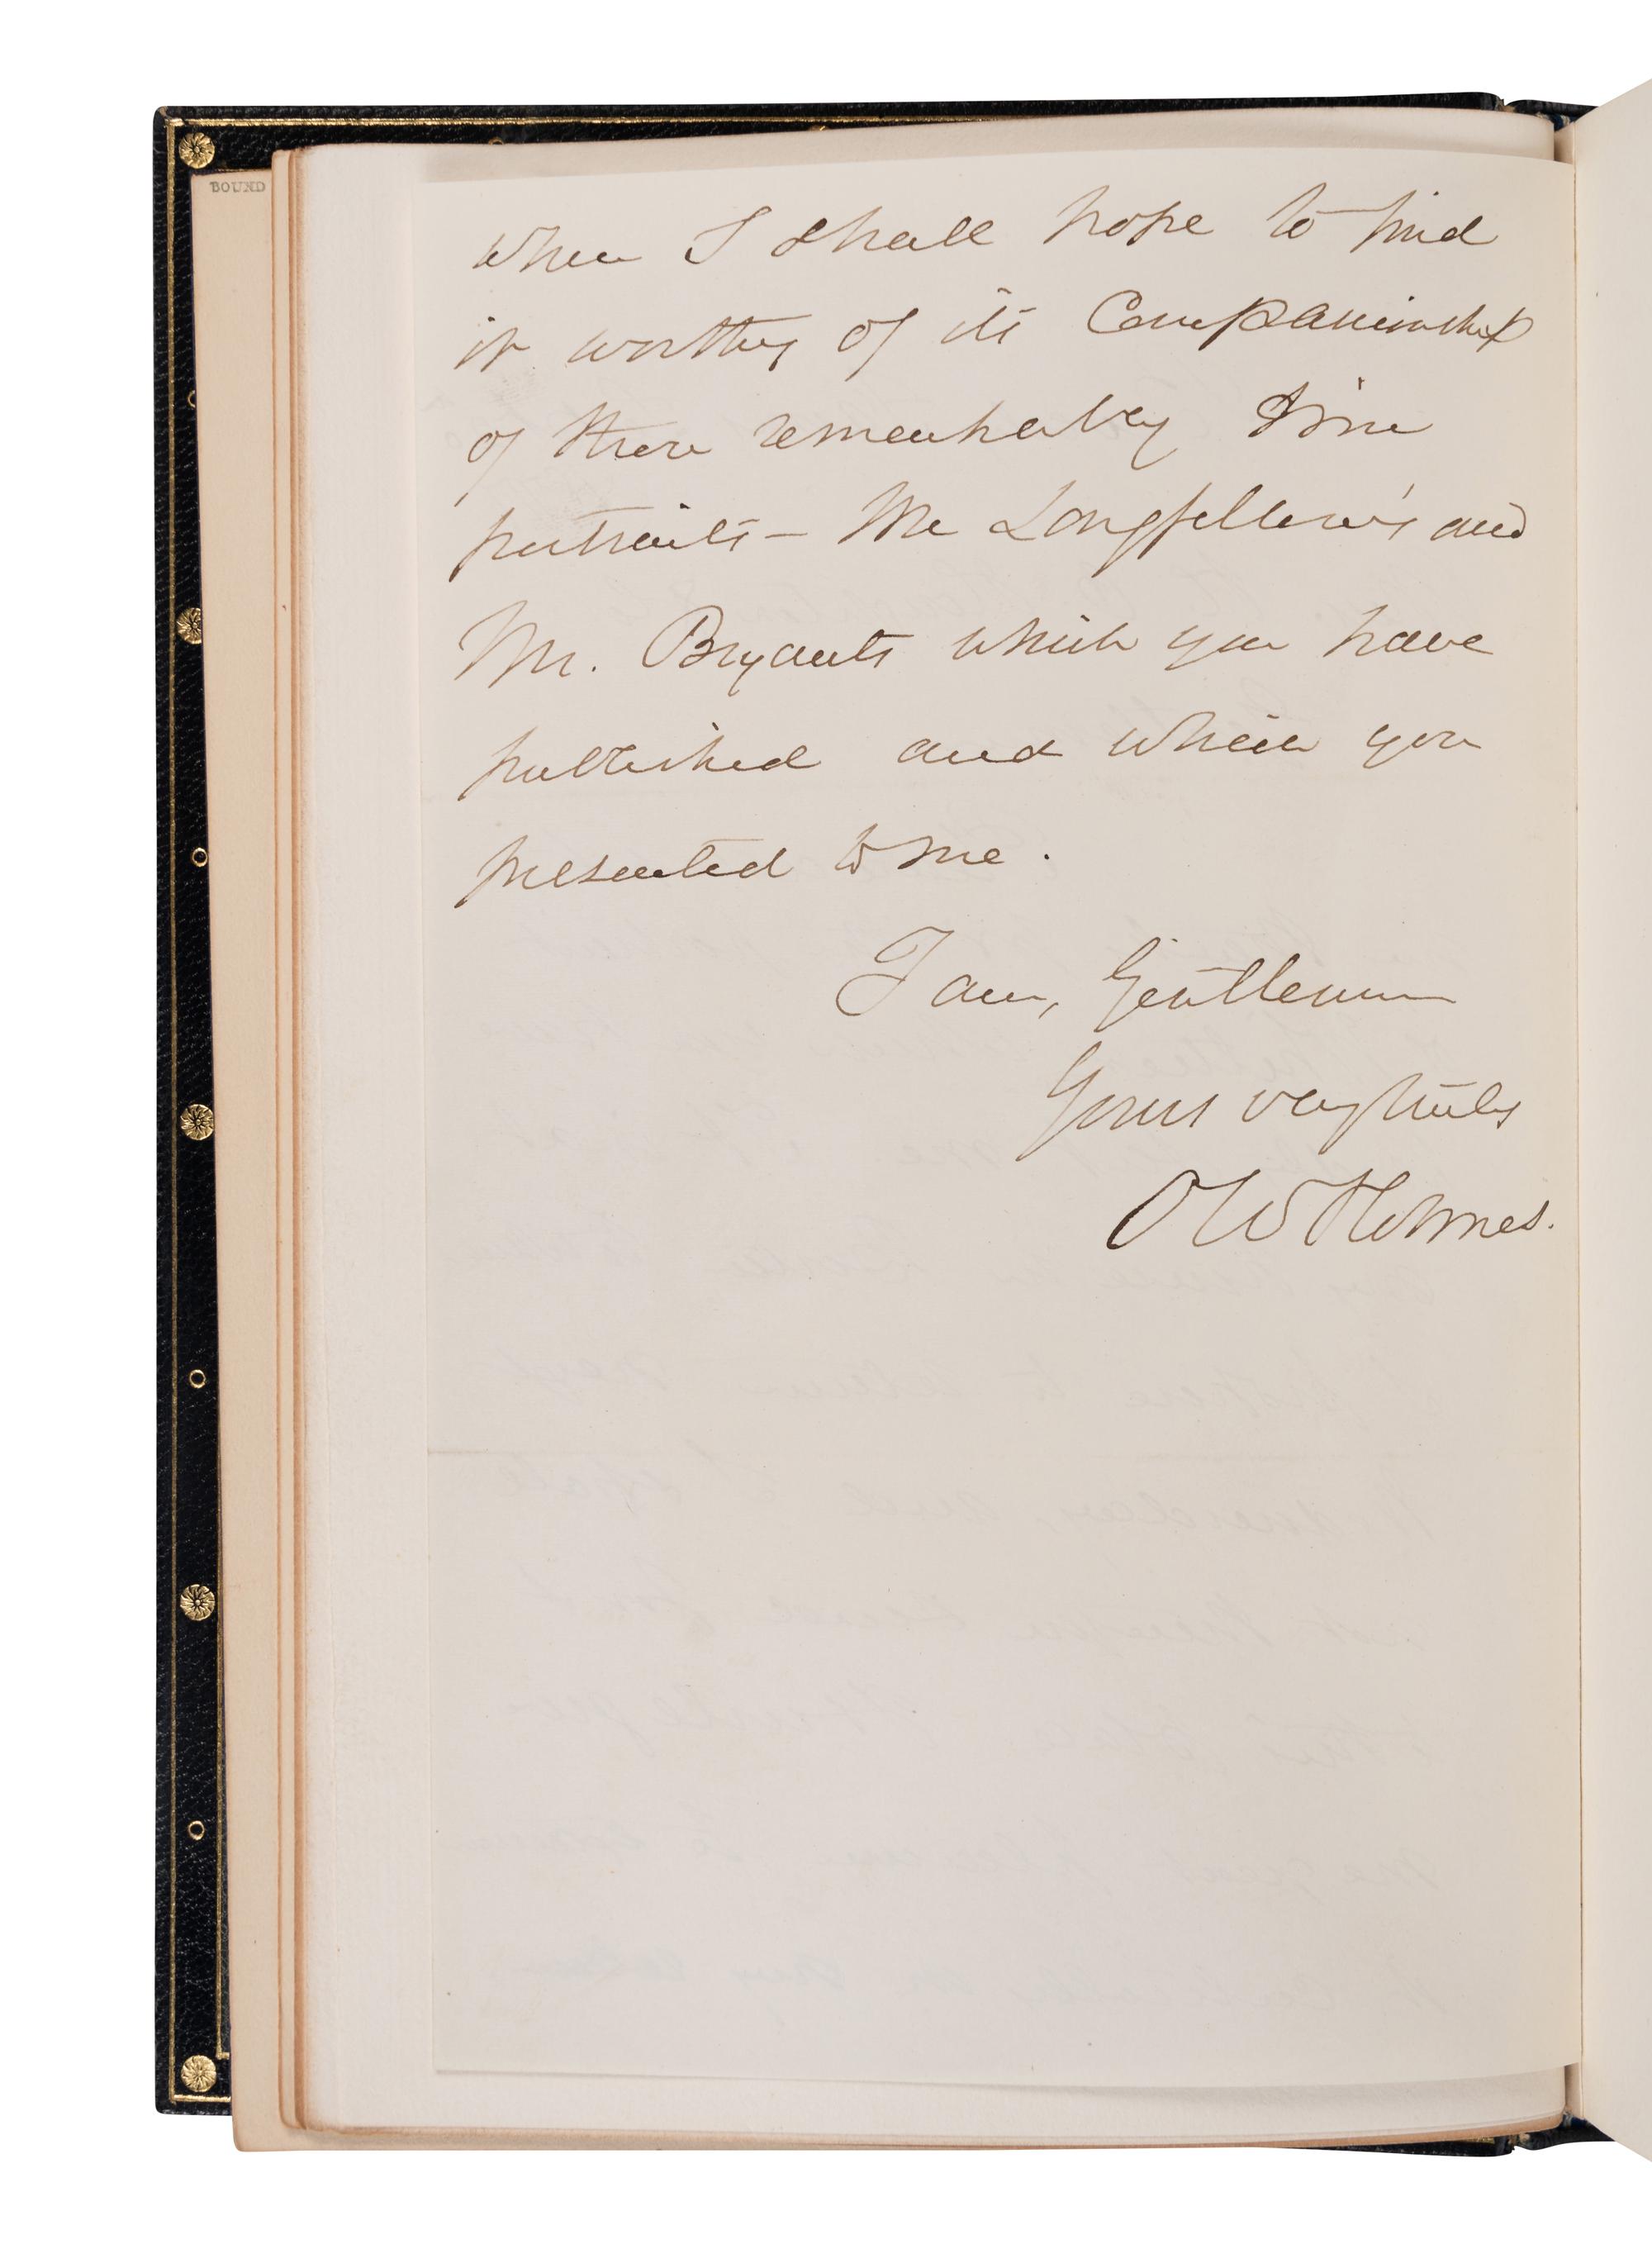 BOUND
when I shall hope to find
it worthy of its companionship
of those remarkably fine
portraits – Mr Longfellow's and
Mr. Bryants which you have
published and which you
presented to me.
I am, Gentlemen
Yours very truly
O W Holmes.